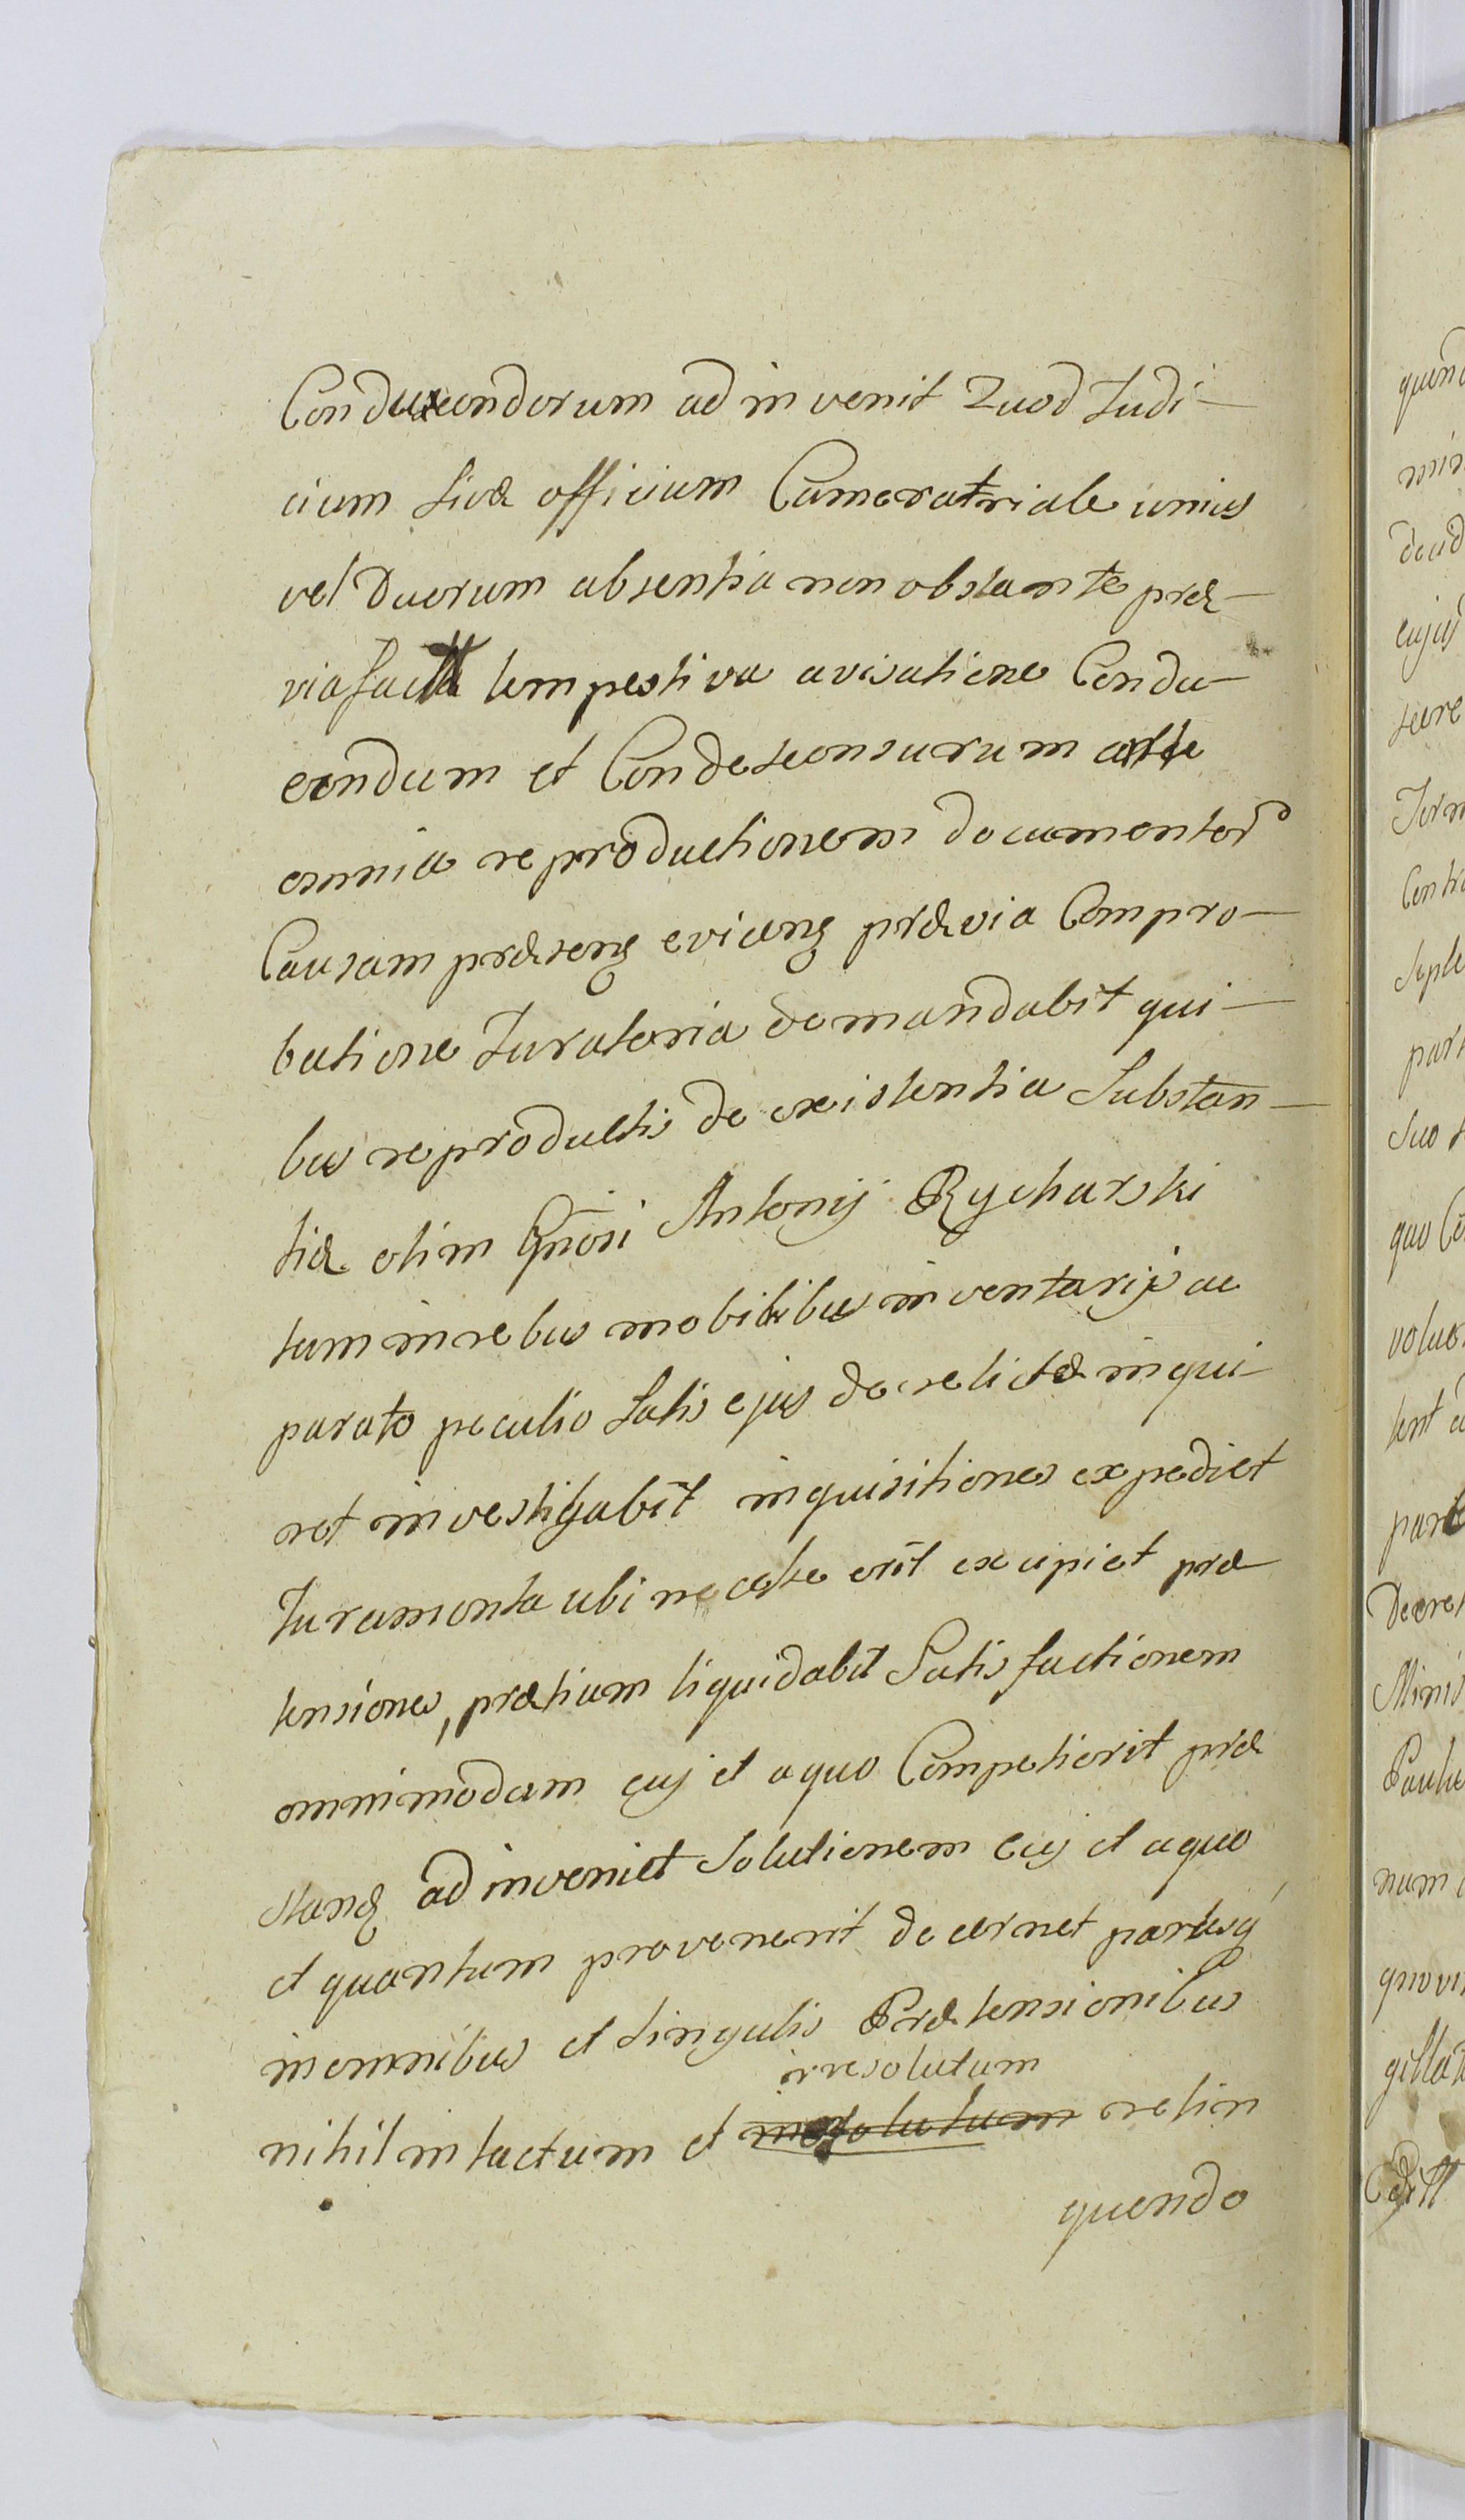 Conducendorum ad invenit Quod Judi-
cium sivæ officium Cameratriale unius
vel Duorum absentia non obstante præ-
via facta tempestiva avisatione Condu-
cendum et Condescensurum ante
omnia reproductionem documentor
Causam præsens eviceng prævia Compro-
batione Juratoria demandabit qui-
bus reproductis de existentia Substan-
tiæ olim Gnosi Antonij Rycharski
tum in rebus mobilibus inventarijs ac
parato peculio satis ejus derelictæ inqui-
ret investigabit inquisitiones expediet
Juramenta ubi necesse erit excipiet præ
tensiones, prætium liquidabit Satisfactionem
omnimodam cuj et a quo Competierit præ
stang ad inveniet Solutionem cuj et a quo
et quantum provenerit decernet partesq
in omnibus et singulis Prætensionibus
irresolutum
nihil intactum et relin
quendo
quend
min
decid
cujus
secre
Term
Contra
Septe
part
Suo
quo Co
volue
tent
part
Decret
Minis
Paulu
num
quovi
gillat